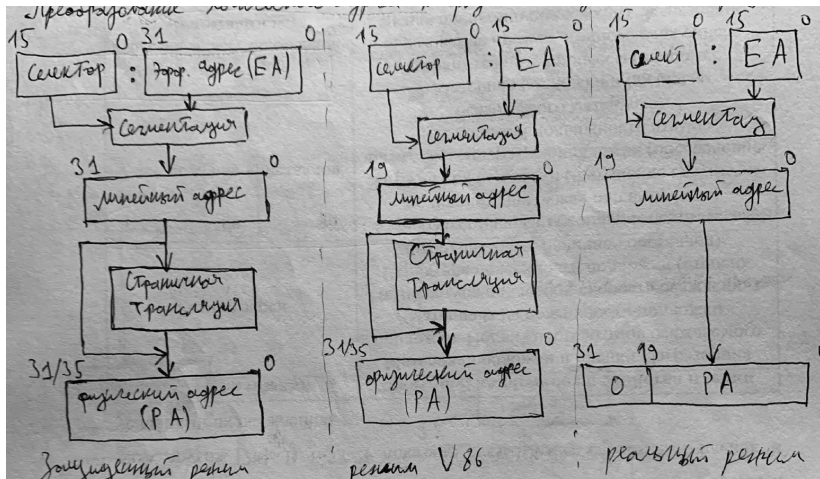 Преобразование
15 0 31 0
селектор : эфф. адрес (EA)
сегментация
31 0
линейный адрес
Страничная
трансляция
31/35 0
физический адрес
(PA)
Защищенный режим
15 0 15 0
селектор : EA
сегментация
19 0
линейный адрес
Страничная
трансляция
31/35 0
физический адрес
(PA)
режим V86
15 0 15 0
селект : EA
сегментац
19 0
линейный адрес
31 19 0
0 PA
реальный режим